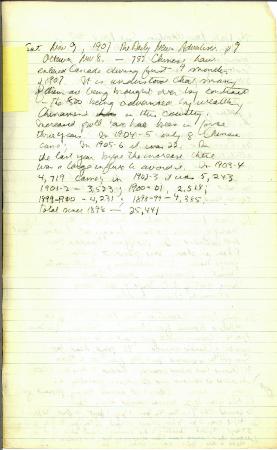 Sat Nov 9, 1907 The Daily News Advertiser p9
Ottawa, Nov 8. — 752 Chinese have
entered Canada during first 9 months
of 1907. It is understood that many
of them are being brought over by contract
the $500 being advanced by wealthy
Chinamen in this country.
increased poll tax has been in force
three years. In 1904-5 only 8 Chinese
came; In 1905-6 it was 22. In
the last year before the increase there
was a large influx to avoid it. In 1903-4
4,719 came; in 1902-3 it was 5,245
1901-2 — 3,523; 1900-01, 2,518;
1899-1900 — 4,231; 1898-99 — 4,385
Total since 1898 — 25,441